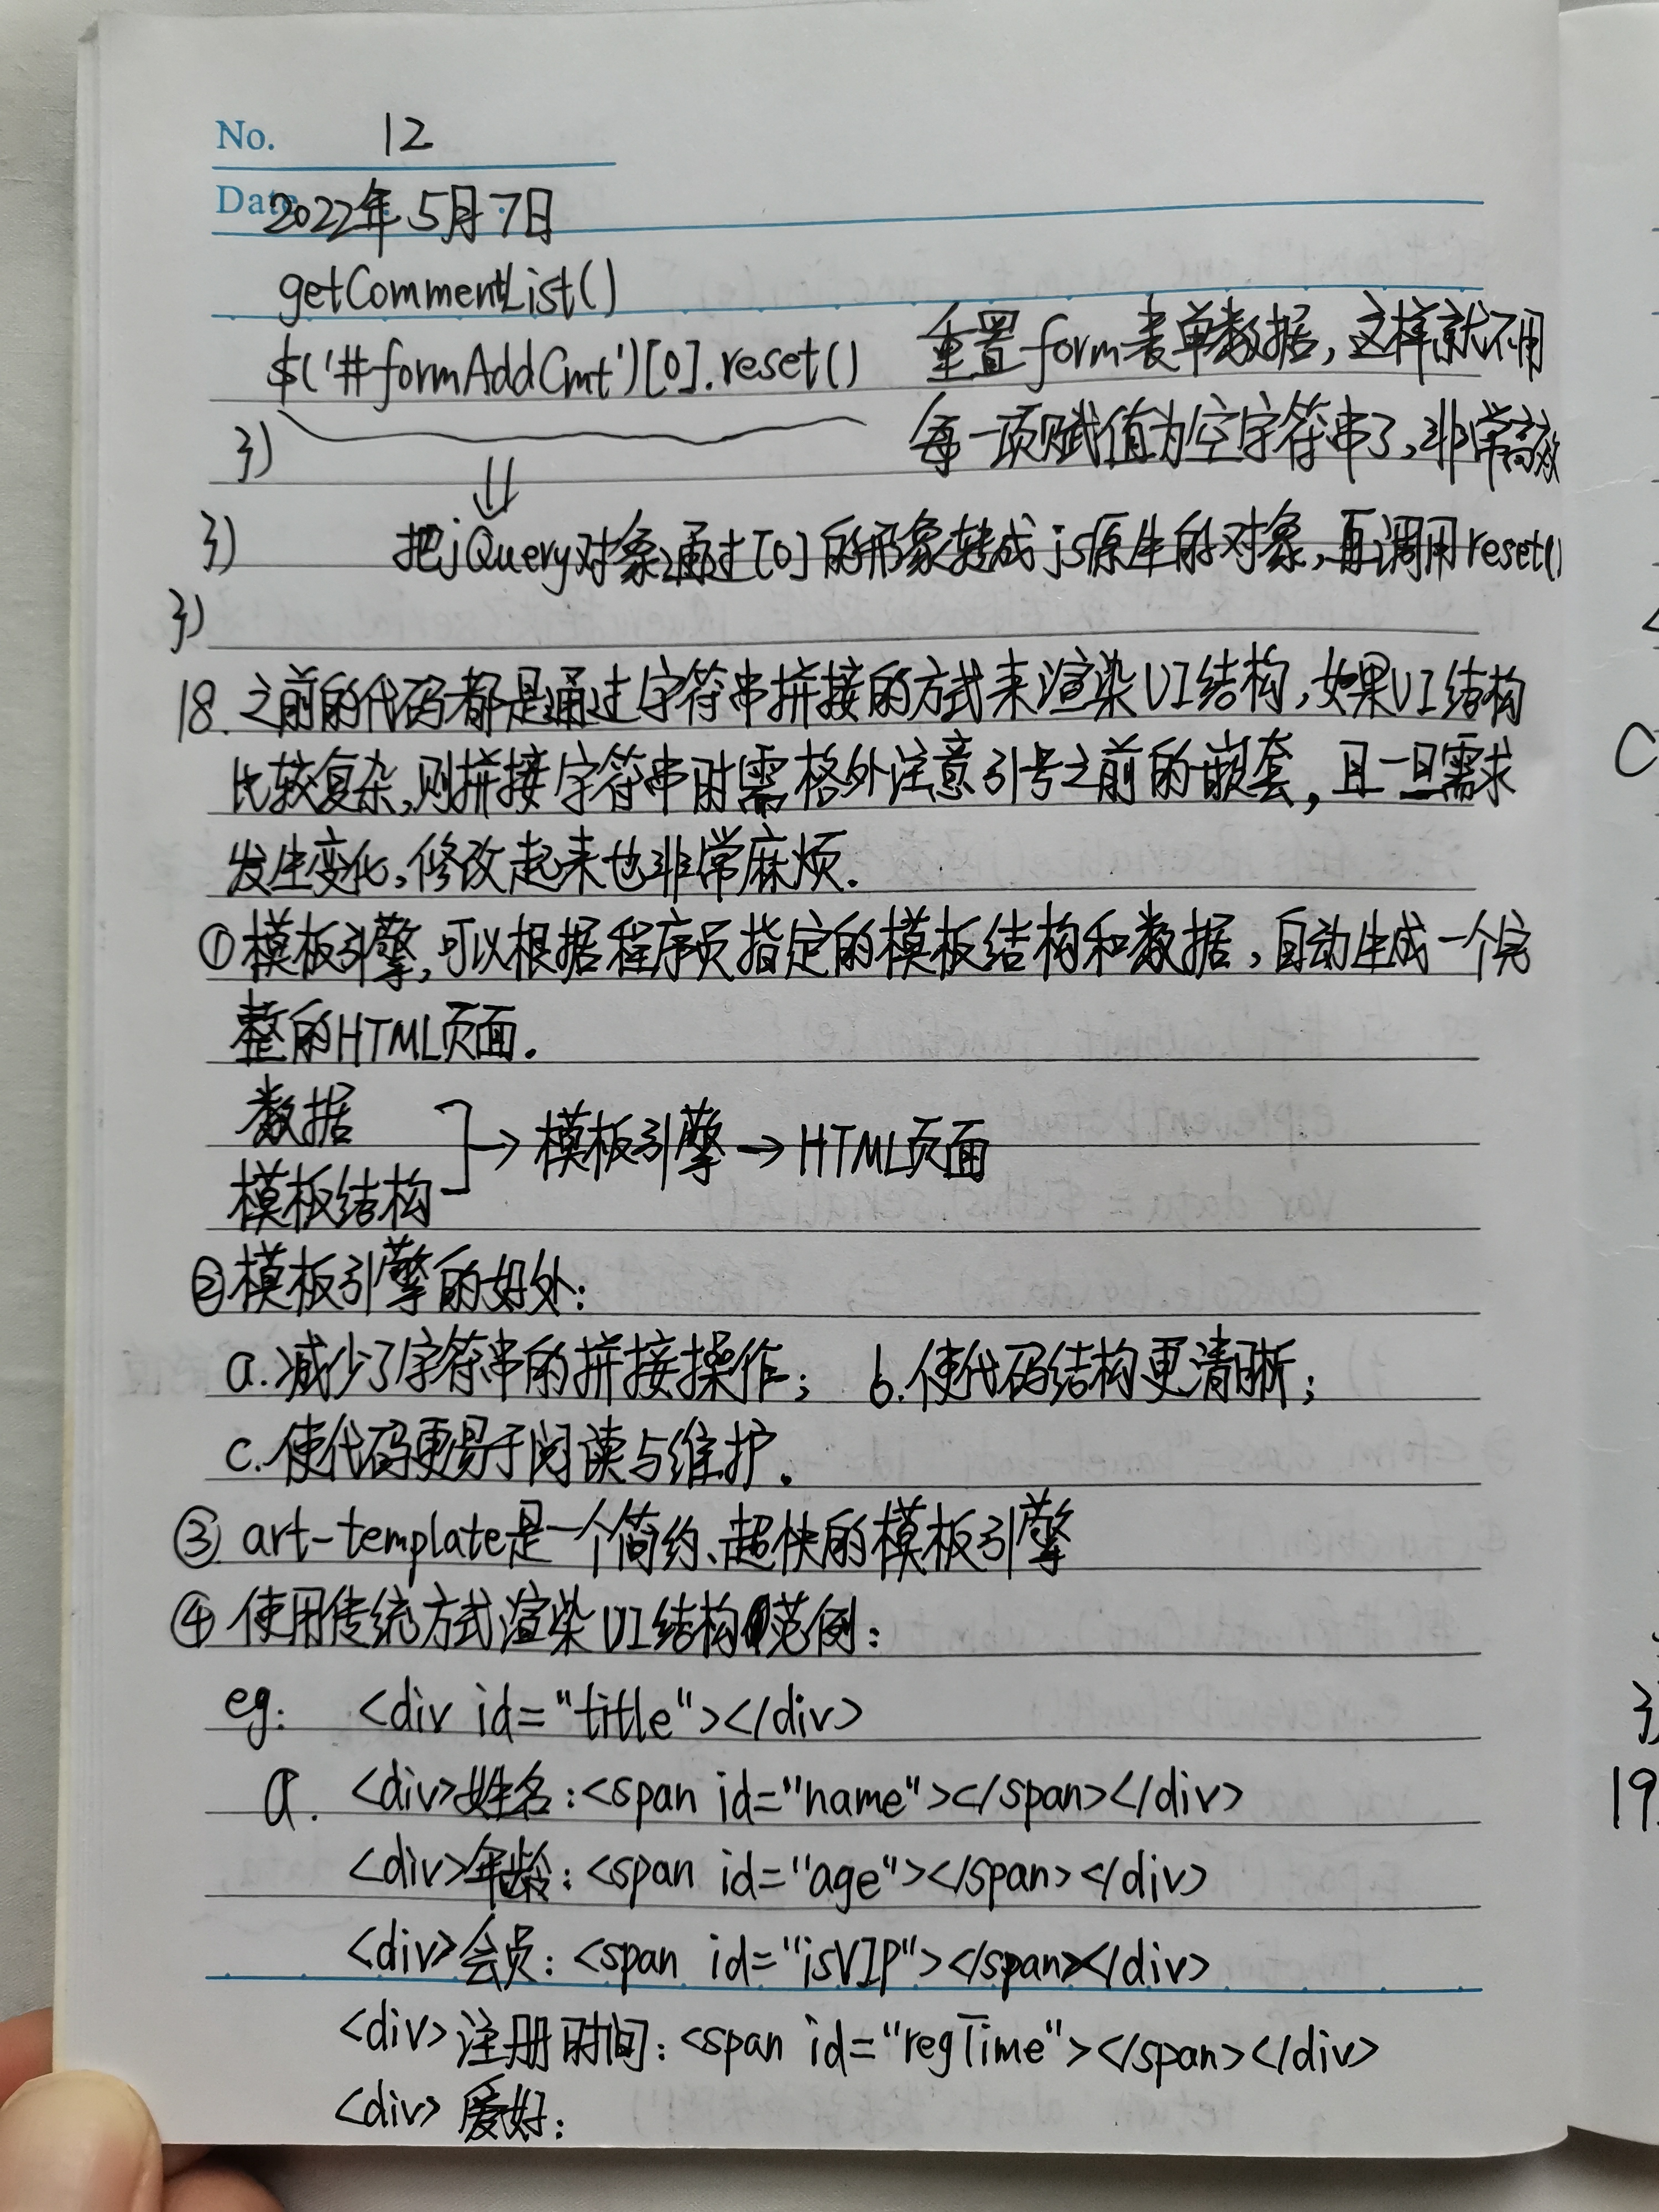 No. 12
Date 2022年5月7日
getCommentList()
$('#formAddCmt')[0].reset() 重置form表单数据,这样就不用
}) 每一项赋值为空字符串了,非常高效
}) 把jQuery对象通过[0]的形象转成js原生的对象,再调用reset()
})
18.之前的代码都是通过字符串拼接的方式来渲染UI结构,如果UI结构
比较复杂,则拼接字符串时需格外注意引号之前的嵌套,且一旦需求
发生变化,修改起来也非常麻烦.
①模板引擎,可以根据程序员指定的模板结构和数据,自动生成一个完
整的HTML页面.
数据
模板结构 → 模板引擎 → HTML页面
②模板引擎的好处:
a.减少了字符串的拼接操作; b.使代码结构更清晰;
c.使代码更易于阅读与维护.
③ art-template是一个简约、超快的模板引擎
④ 使用传统方式渲染UI结构范例:
eg: <div id="title"></div>
a. <div>姓名:<span id="name"></span></div>
<div>年龄:<span id="age"></span></div>
<div>会员:<span id="isVIP"></span></div>
<div>注册时间:<span id="regTime"></span></div>
<div>爱好:
19.